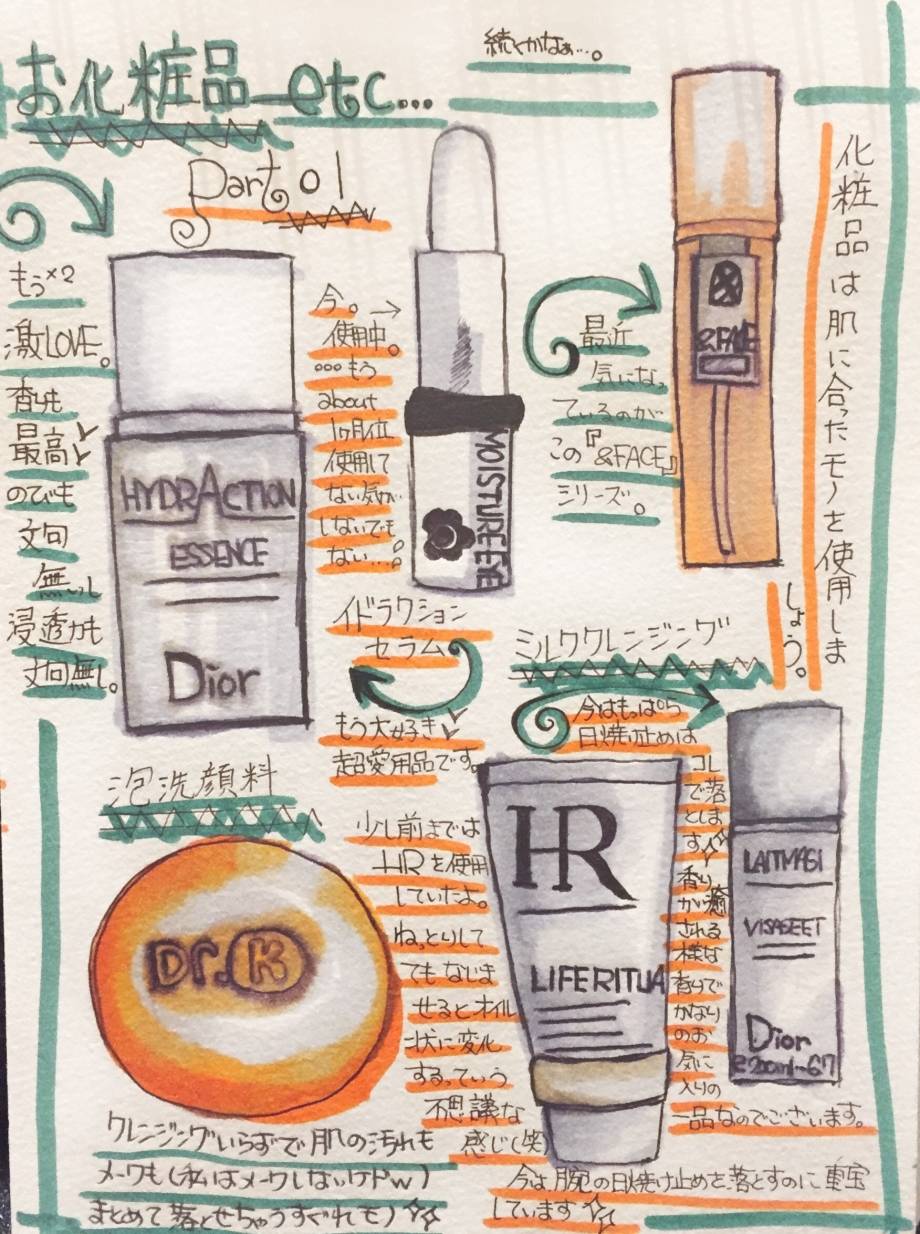 お化粧品 etc...
続くかなぁ…。
part 01
もう×2
激LOVE。
香りも
最高♪
のびも
文句
無いし
浸透力も
文句無し。
HYDRACTION
ESSENCE
Dior
今。→
使用中。
…もう
about
1ヶ月位
使用して
ない気が
しないでも
ない…。
MOISTURE EYE
最近
気になっ
ているのが
この『&FACE』
シリーズ。
&FACE
化粧品は肌に合ったモノを使用しま
しょう。
イドラクション
セラム
もう大好き♪
超愛用品です。
ミルククレンジング
今はもっぱら
日焼け止めは
コレ
で落
としま
す♪
香り
が癒
される
様な
香りで
かなり
のお
気に
入りの
一品なのでございます。
LAITMAGI
VISAGEET
Dior
e200ml-6.7
泡洗顔料
Dr.K
クレンジングいらずで肌の汚れも
メークも(私はメークしないけドw)
まとめて落とせちゃうすぐれもの
少し前までは
HRを使用
していたよ。
ねっとりして
てもなじま
せるとオイル
状に変化
するっていう
不思議な
感じ(笑)
HR
LIFERITUA
今は、腕の日焼け止めを落とすのに重宝
しています☆